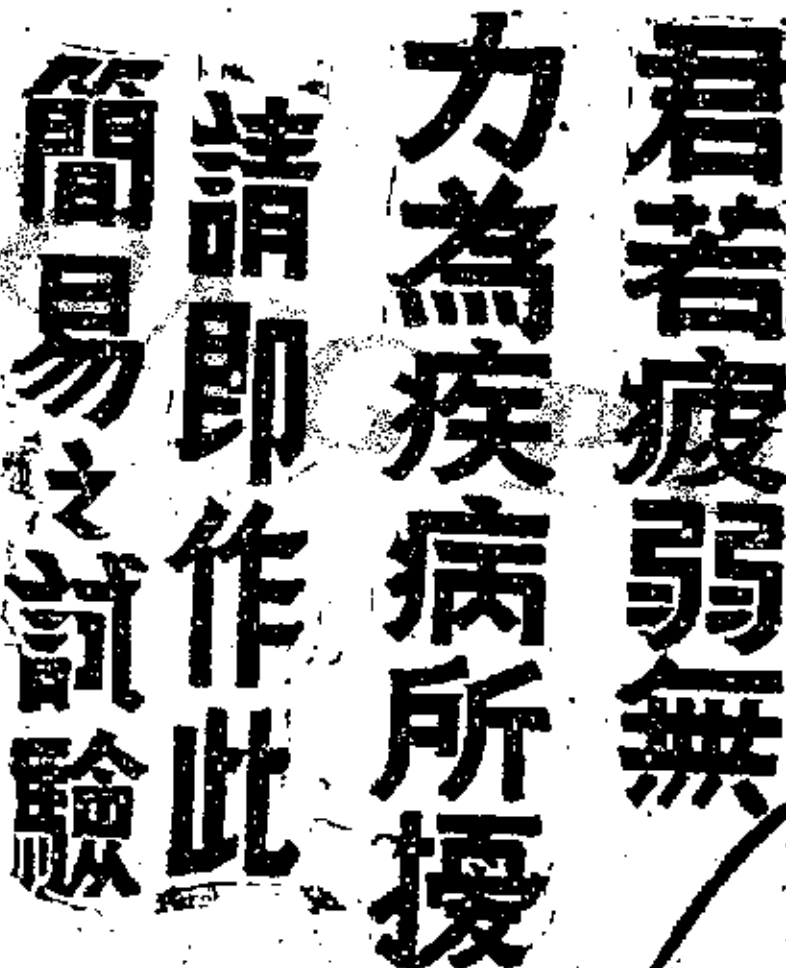 君若疲弱無
力為疾病所擾
請即作此
簡易之試驗